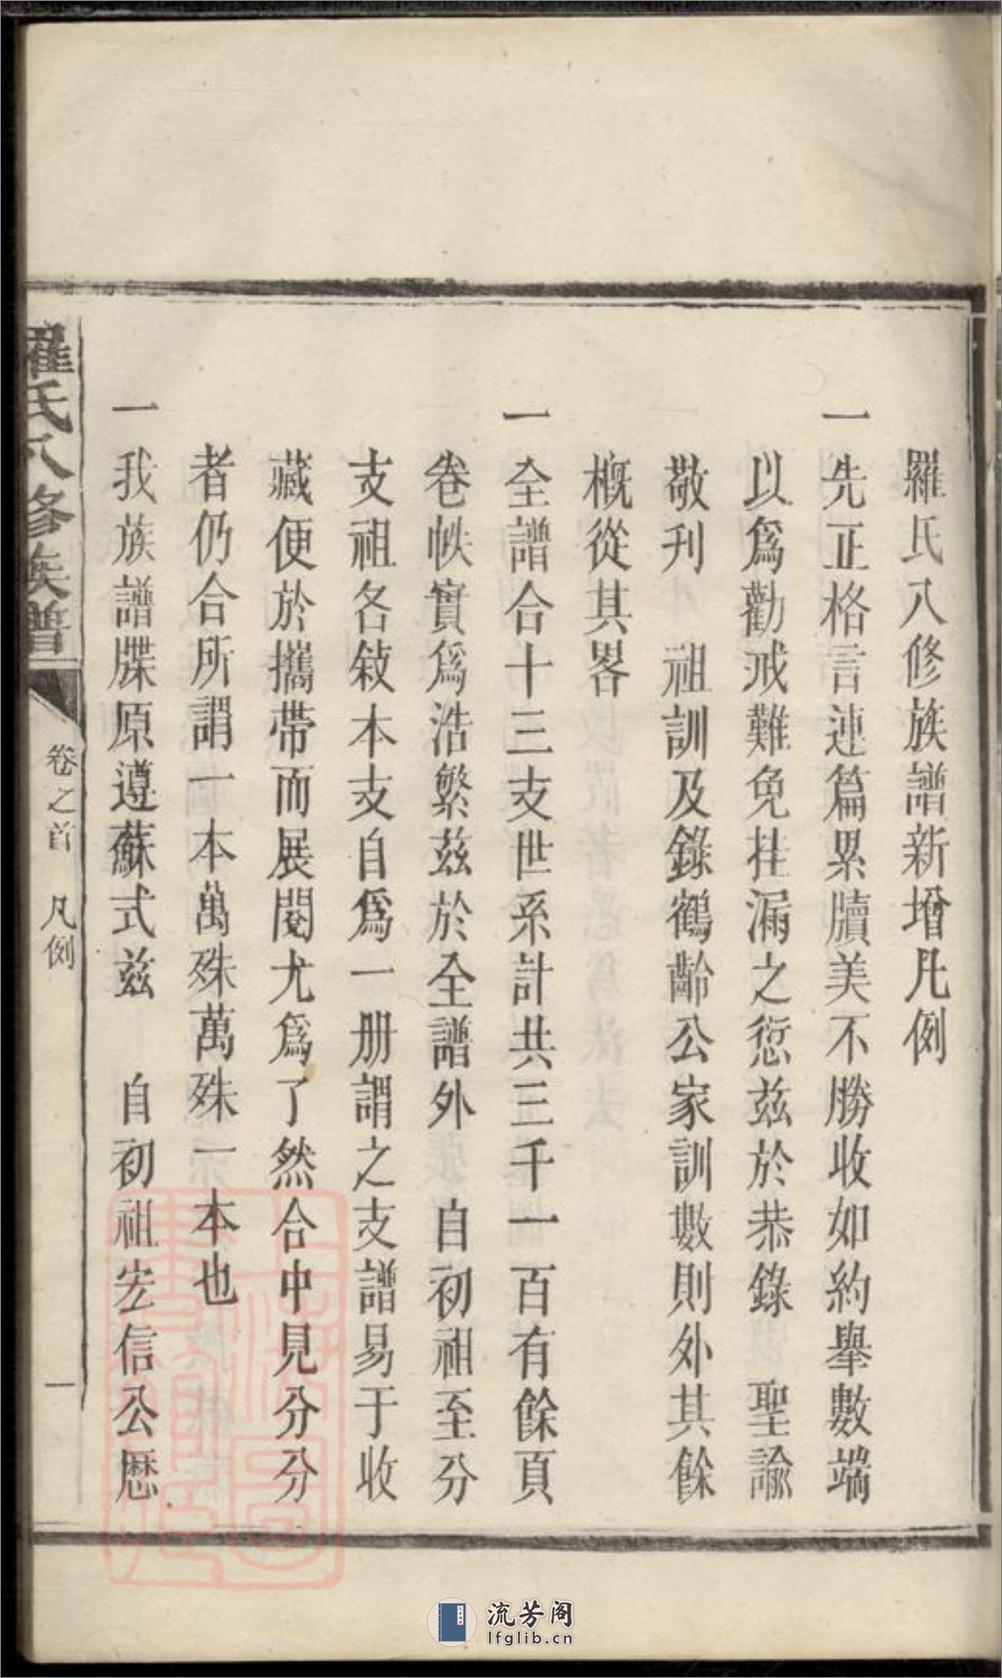 羅氏八修族譜新增凡例
一先正格言連篇累牘美不勝收如約舉數端
以爲勸戒難免挂漏之愆茲於恭錄　聖諭
敬刊　祖訓及錄鶴齡公家訓數則外其餘
槪從其畧
一全譜合十三支世系計共三千一百有餘頁
卷帙實爲浩繁茲於全譜外　自初祖至分
支祖各敍本支自爲一册謂之支譜易于收
藏便於攜帶而展閱尤爲了然合中見分分
者仍合所謂一本萬殊萬殊一本也
一我族譜牒原遵蘇式茲　自初祖宏信公歷
羅氏八修族譜
卷之首　凡例
一
流芳阁
lfglib.cn